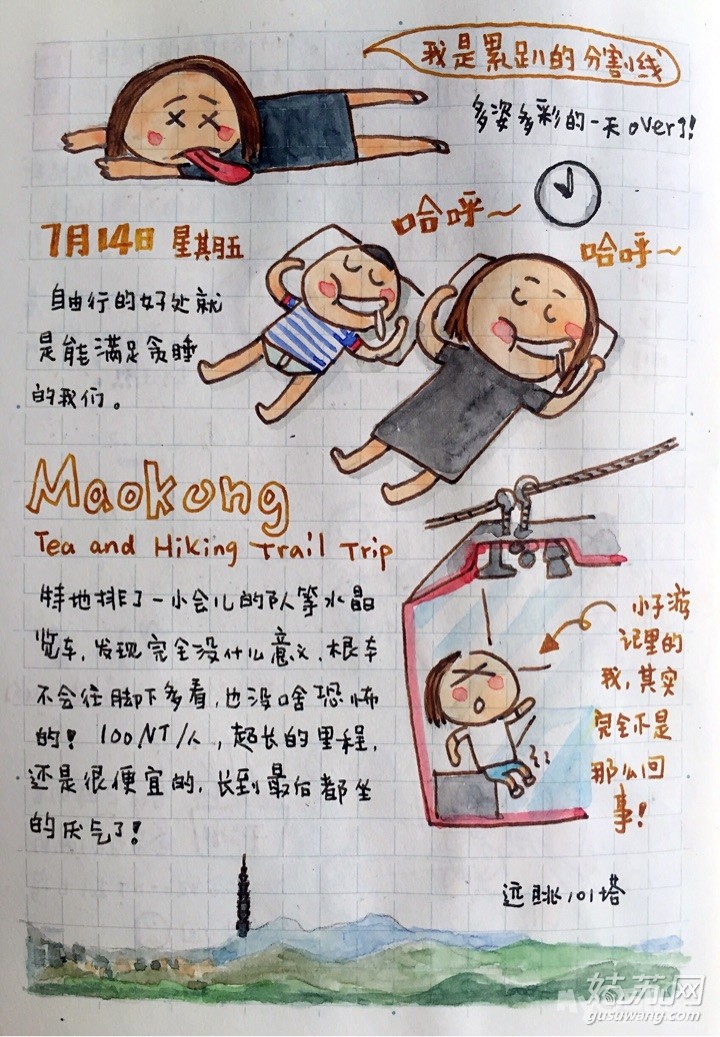 我是累趴的分割线
多姿多彩的一天over了!
7月14日 星期五
哈呼~
哈呼~
自由行的好处就
是能满足贪睡
的我们。
Maokong
Tea and Hiking Trail Trip
特地排了一小会儿的队等水晶
览车,发现完全没什么意义,根本
不会往脚下多看,也没啥恐怖
的! 100NT/人,超长的里程,
还是很便宜的,长到最后都坐
的厌气了!
小于游
记里的
我,其实
完全不是
那么回
事!
远眺101塔
姑苏网
gusuwang.com